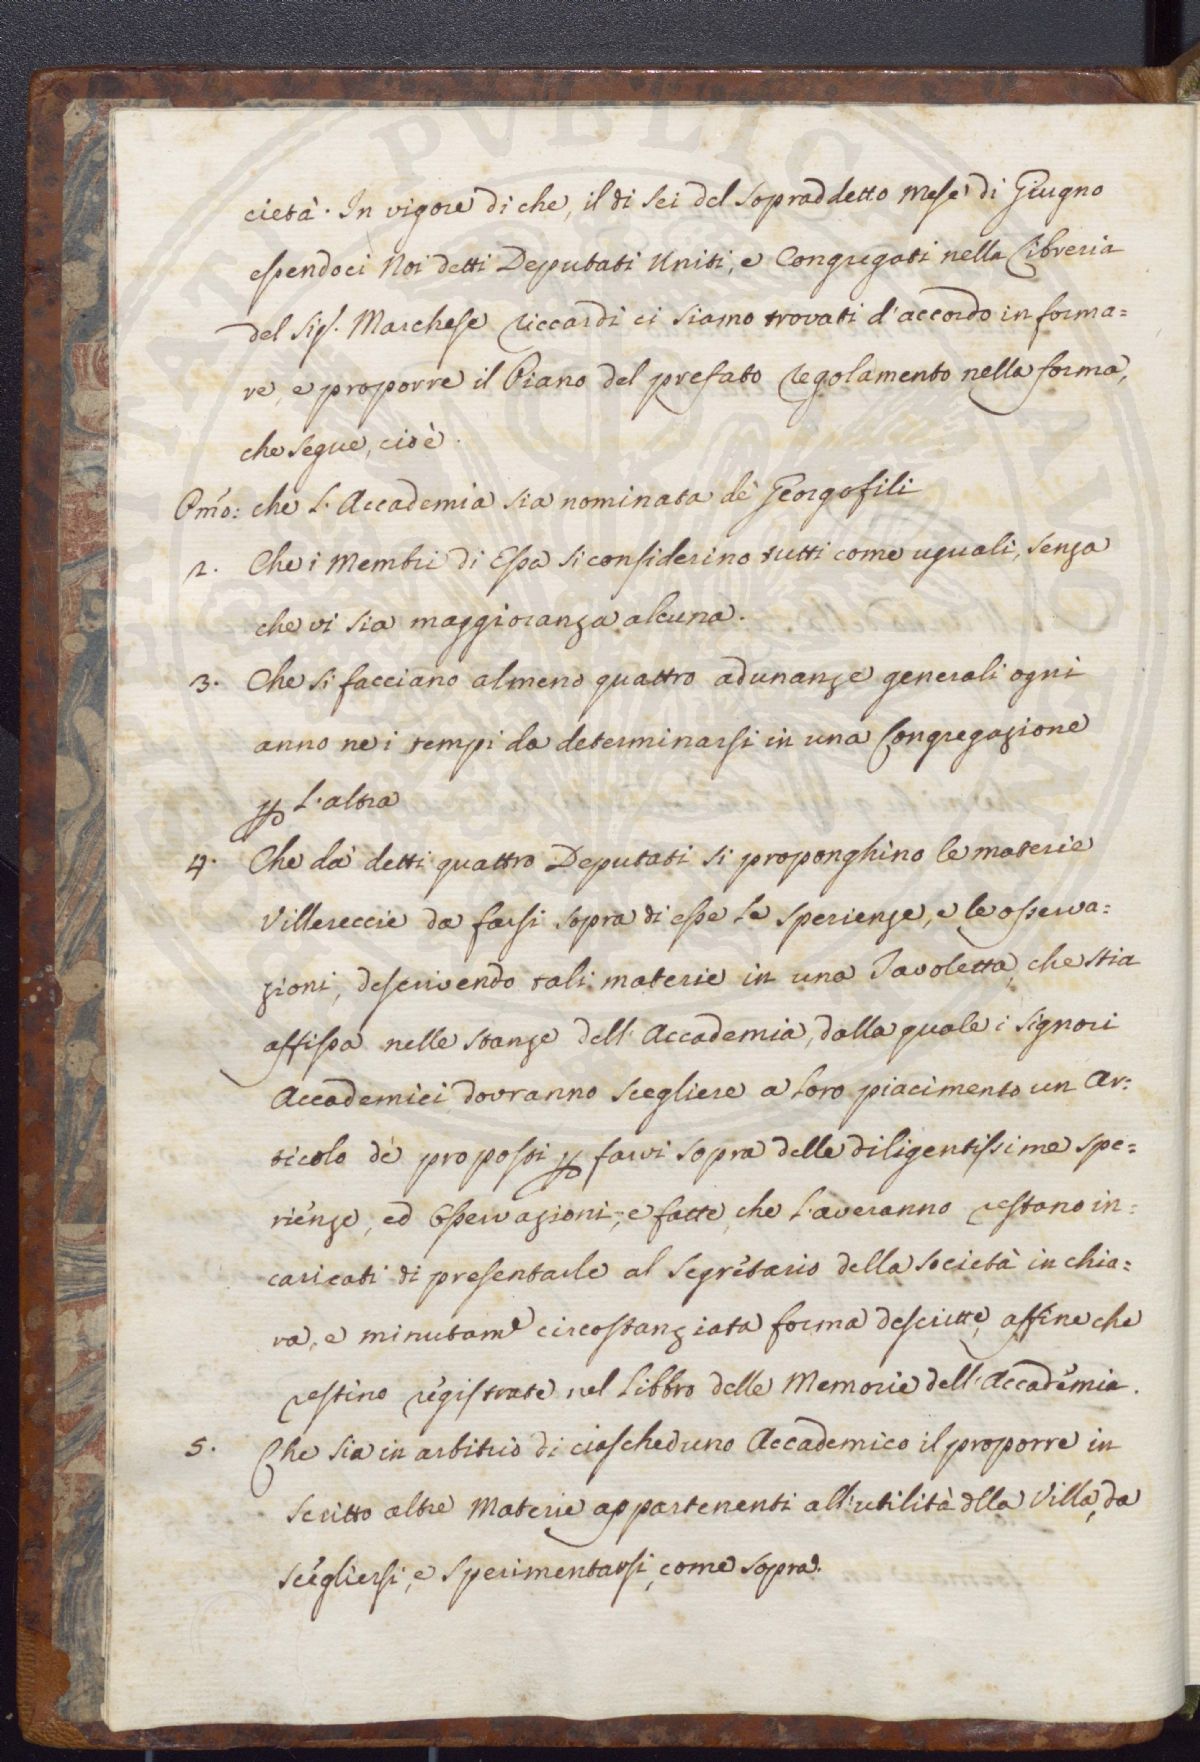 cietà. In vigore di che, il di sei del sopraddetto Mese di Giugno
essendoci Noi detti Deputati Uniti, e Congregati nella Libreria
del Sig.r Marchese Riccardi ci siamo trovati d'accordo in forma=
re, e proporre il Piano del prefato Regolamento nella forma,
che segue, cioè.
Pmo: che L'Accademia sia nominata de' Georgofili
2. Che i Membri di Essa si considerino tutti come uguali, senza
che vi sia maggioranza alcuna.
3. Che si facciano almeno quattro adunanze generali ogni
anno nei tempi da determinarsi in una Congregazione
p L'altra
4. Che da' detti quattro Deputati si proponghino le materie
Villereccie da farsi sopra di esse le sperienze, e le osserva=
zioni, descrivendo tali materie in una Tavoletta, che stia
affissa nelle stanze dell'Accademia, dalla quale i Signori
Accademici dovranno scegliere a loro piacimento un Ar=
ticolo de' proposti p farvi sopra delle diligentissime spe=
rienze, ed Osservazioni, e fatte, che L'averanno restano in=
caricati di presentarle al Segretario della Società in chia=
ra, e minutam.e circostanziata forma descritte, affine che
restino registrate nel Libbro delle Memorie dell'Accademia.
5. Che sia in arbitrio di ciascheduno Accademico il proporre in
scritto altre Materie appartenenti all'utilità dlla Villa, da
scegliersi, e sperimentarsi, come sopra.